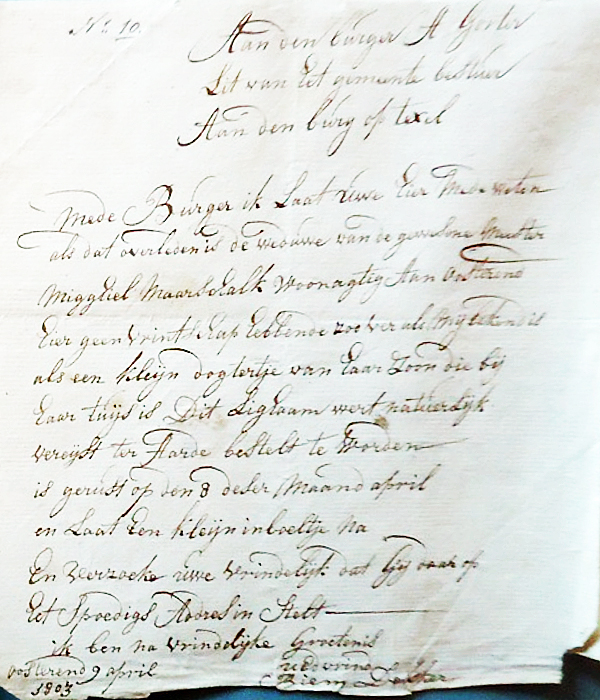 No. 10.
Aan den burger A Gorter
Lit van het gemeente bestuur
Aan den burg op texel
Mede Burger ik Laat uwe hier mede weten
als dat overleden is de weduwe van de gewesene Meester
Migghiel Maarschalk woonagtig Aan Oosterend
hier geen vrintschap hebbende zoo ver als Mij bekend is
als een kleijn dogtertje van haar Zoon die bij
haar tuijs is Dit Lighaam wert natuerlijk
vereyst ter Aarde bestelt te worden
is gerust op den 8 deser Maand april
en Laat Een kleijn inboeltje na
En Verzoeke uwe vrindelijk dat Gij daar op
het Spoedigs Adres in Stelt
ik ben na vrindelijke Groetenis
uedvrind
Oosterend 9 april
Riem Dekker
1803